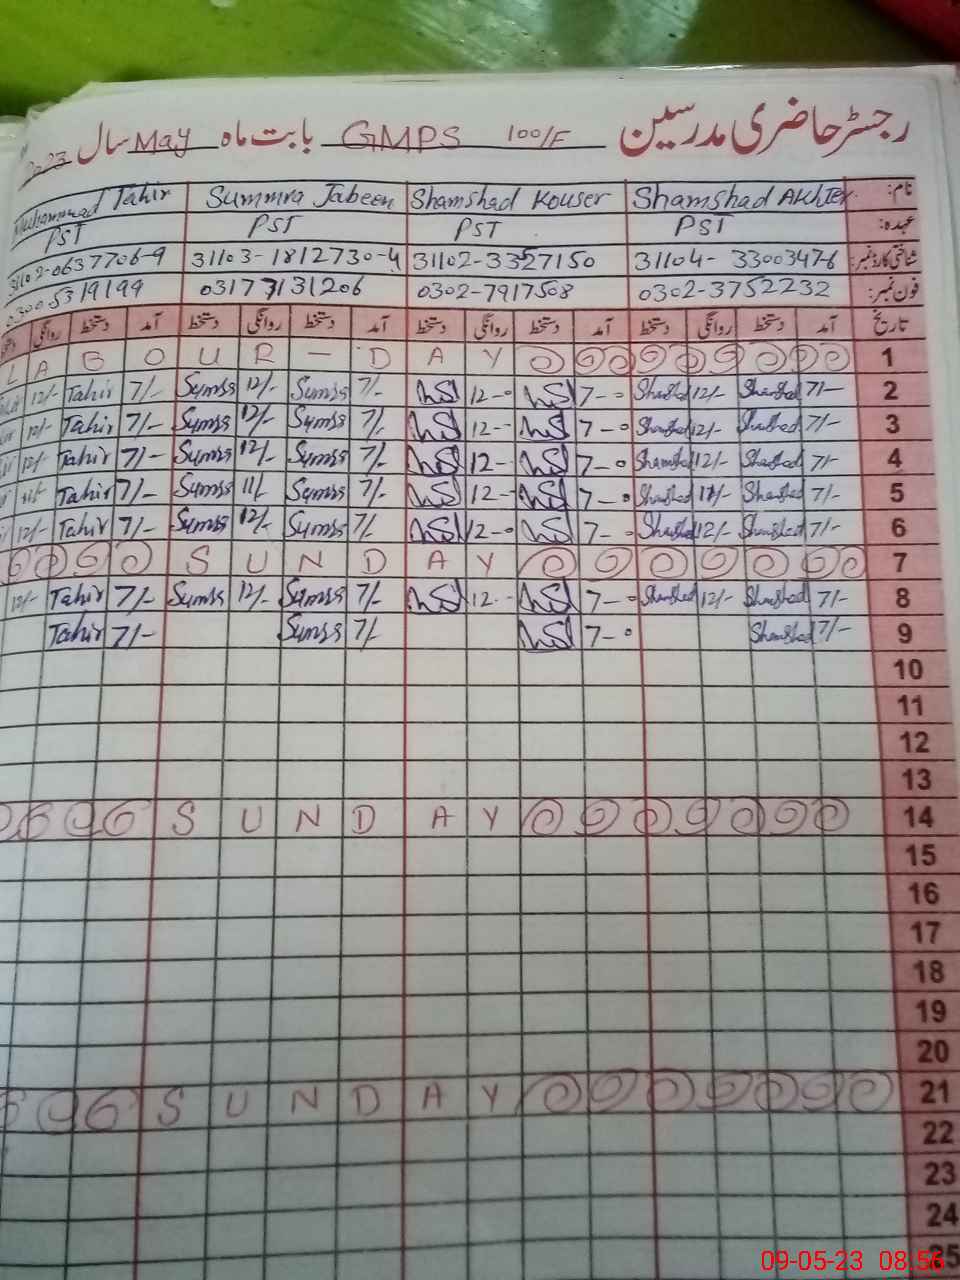 رجسٹر حاضری مدرسین GMPS 100/F بابت ماہ May سال 2023
نام: Shamshad Akhter. Shamshad Kouser Summra Jabeen Muhammad Tahir
عہدہ: PST PST PST PST
شناختی کارڈ نمبر: 31104- 3300347-6 31102-3327150 31103-1812730-4 31102-0637706-9
فون نمبر: 0302-3752232 0302-7917508 03177131206 03005319199
تاریخ آمد دستخط روانگی دستخط آمد دستخط روانگی دستخط آمد دستخط روانگی دستخط آمد دستخط روانگی
1 LABOUR-DAY
2 7/- Shamshad 12/- Shamshad 7-0 12-0 7/- Sumss 12/- Sumss 7/- Tahir 12/-
3 7/- Shamshad 12/- Shamshad 7-0 12-0 7/- Sumss 12/- Sumss 7/- Tahir 12/-
4 7/- Shamshad 12/- Shamshad 7-0 12- 7/- Sumss 12/- Sumss 7/- Tahir 12/-
5 7/- Shamshad 11/- Shamshad 7-0 12-0 7/- Sumss 11/- Sumss 7/- Tahir 11/-
6 7/- Shamshad 12/- Shamshad 7-0 12-0 7/- Sumss 12/- Sumss 7/- Tahir 12/-
7 SUNDAY
8 7/- Shamshad 12/- Shamshad 7-0 12-- 7/- Sumss 12/- Sumss 7/- Tahir 12/-
9 7/- Shamshad 7-0 7/- Sumss 7/- Tahir
10
11
12
13
14 SUNDAY
15
16
17
18
19
20
21 SUNDAY
22
23
24
25
09-05-23 08:56